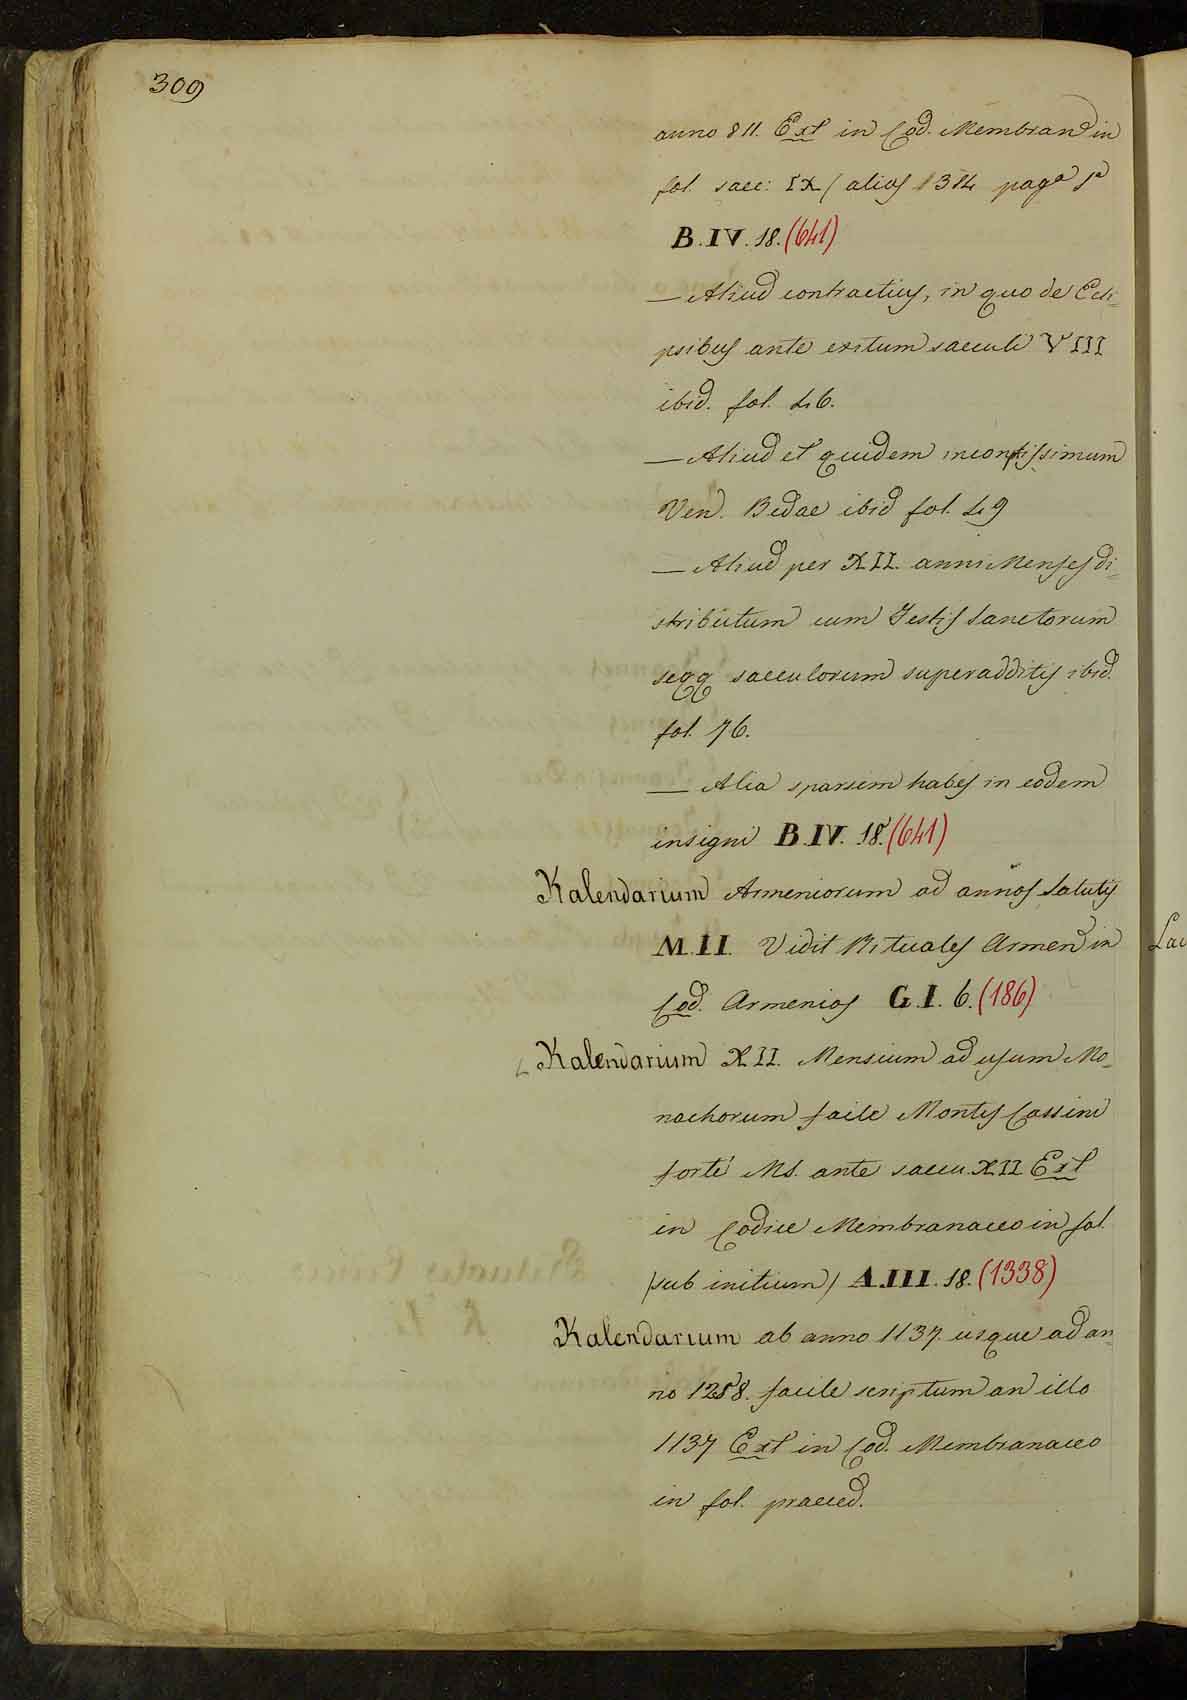 309
anno 811. Ext in Cod. Membran in
fol. saec: IX / alias 1314 paga 1a
B.IV.18.(641)
— Aliud contractius, in quo de Ecli-
psibus ante exitum saeculi VIII
ibid. fol. 46.
— Aliud et quidem incomptissimum
Ven. Bedae ibid fol. 49
— Aliud per XII. anni Menses di-
stributum cum Festis Sanctorum
seqq saeculorum superadditis ibid.
fol. 76.
— Alia sparsim habes in eodem
insigni B.IV.18.(641)
Kalendarium Armeniorum ad annos Salutis
M.II. Vidit Rituales Armen in
Cod. Armenios G.I.6.(186)
Kalendarium XII. Mensium ad usum Mo-
nachorum facile Montis Cassini
forte Ms. ante saecu. XII Ext
in Codice Membranaceo in fol.
/sub initium/ A.III.18.(1338)
Kalendarium ab anno 1137. usque ad an-
no 1258. facile scriptum an illo
1137 Ext in Cod. Membranaceo
in fol. praeced.
Lau